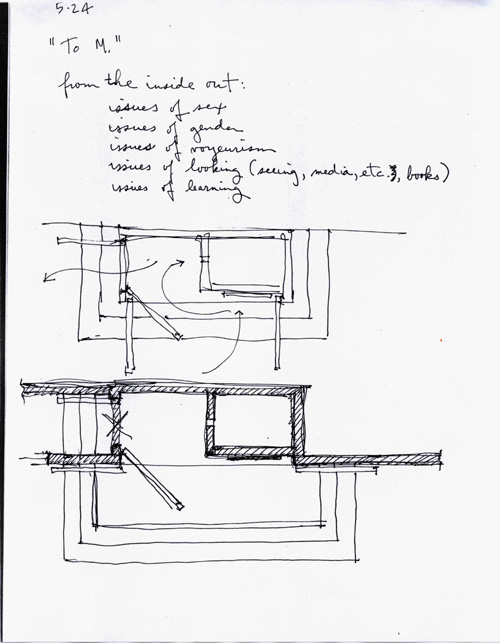 5·24
"To M."
from the inside out:
issues of sex
issues of gender
issues of voyeurism
issues of looking (seeing, media, etc., books)
issues of learning